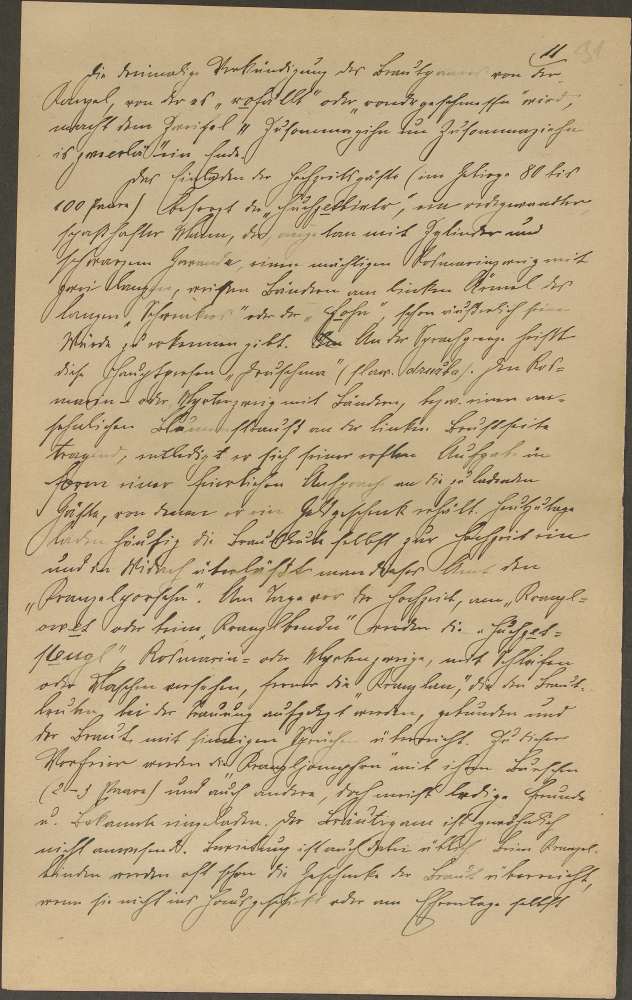 11 31
Die dreimalige Verkündigung des Brautpaares von der
Kanzel, von der es „rofällt“ oder „rondergeschmessn“ wird,
macht dem Zweifel „Zusommagihn un Zusommaziehn
is zweerlä“ ein Ende.
Das Einladen der Hochzeitsgäste (im Gebirge 80 bis
100 Paare) besorgt der „Huchzetbieter“, ein redegewandter,
spaßhafter Mann, der, angetan mit Zylinder und
schwarzem Gewande, einen mächtigen Rosmarinzweig mit
zwei langen, weißen Bändern am linken Ärmel des
langen „Schwenkers“ oder der, schon äußerlich seine
Würde zu erkennen gibt. An der Sprachgrenze heißt
diese Hauptperson „Druschma“ (slaw. družba). Den Ros-
marin- oder Myrtenzweig mit Bändern, bezw. einen an-
sehnlichen Blumenstrauß an der linken Brustseite
tragend, entledigt er sich seiner ersten Aufgabe in
Form einer feierlichen Ansprach an die zu ladenden
Gäste, von denen er ein Geldgeschenk erhält. Heutzutage
laden häufig die Brautleute selbst zur Hochzeit ein
und in überläßt man dieses Amt den
„Kranzelporschn“. Am Tage vor der Hochzeit, am „Kranzl-
owet“ oder beim „Kranzlbinden“ werden die „Huchzet-
stengl“ Rosmarin- oder Myrtenzweige, mit Schleifen
oder Maschen versehen, ferner die „Kranzlan“, die den Braut-
leuten bei der Trauung aufgelegt werden, gebunden und
der Braut mit sinnigen Sprüchen überreicht. Zu dieser
Vorfeier werden die „Kranzljompfon“ mit ihren Burschen
(2–3 Paare) und auch andere, doch meist ledige Freunde
u. Bekannte eingeladen. Der Bräutigam ist gewöhnlich
nicht anwesend. Bewirtung ist auch dabei üblich. Beim Kranzel-
binden werden oft schon die Geschenke der Braut überreicht,
wenn sie nicht ins Haus geschickt oder am Ehrentage selbst